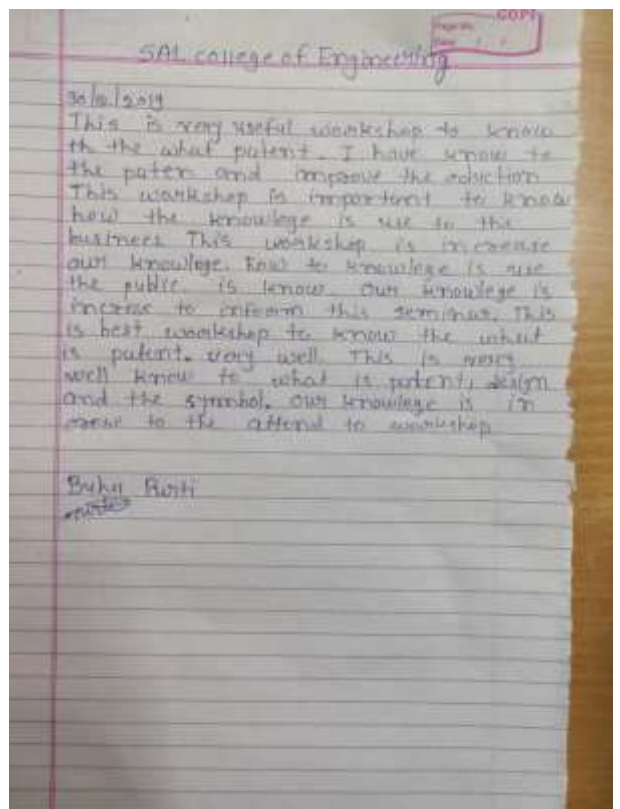 COPY
Page No.
Date / /
SAL college of Engineering
30/12/2019
This is very useful woorkshop to know
th the what patent. I have know to
the paten and improve the eduction
This woorkshop is importent to know
how the knowlege is use to the
business This woorkshop is increase
our knowlege. how to knowlege is use
the public is know our knowlege is
increse to inform this seminar. This
is best woorkshop to know the what
is patent. very well. This is very
well know to what is patent, design
and the symbol. our knowlege is in
crese to the attend to woorkshop